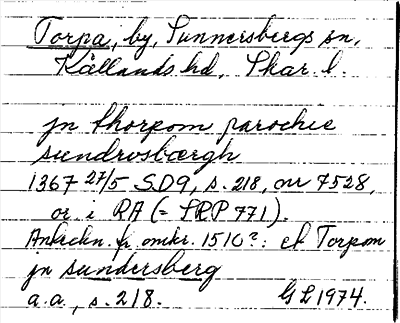 Torpa, by, Sunnersbergs sn,
Kållands hd, Skar. l.
jn thorpom parochie
sundrosbærgh
1367 27/5 SD9, s. 218, nr 7528,
or. i RA (= SRP 771).
Anteckn. fr. omkr. 1510?: et Torpom
jn sundersberg
a.a., s. 218. GL 1974.